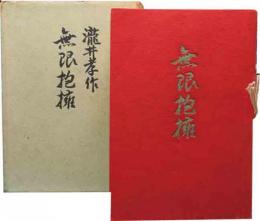 瀧井孝作
無限抱擁
無限抱擁